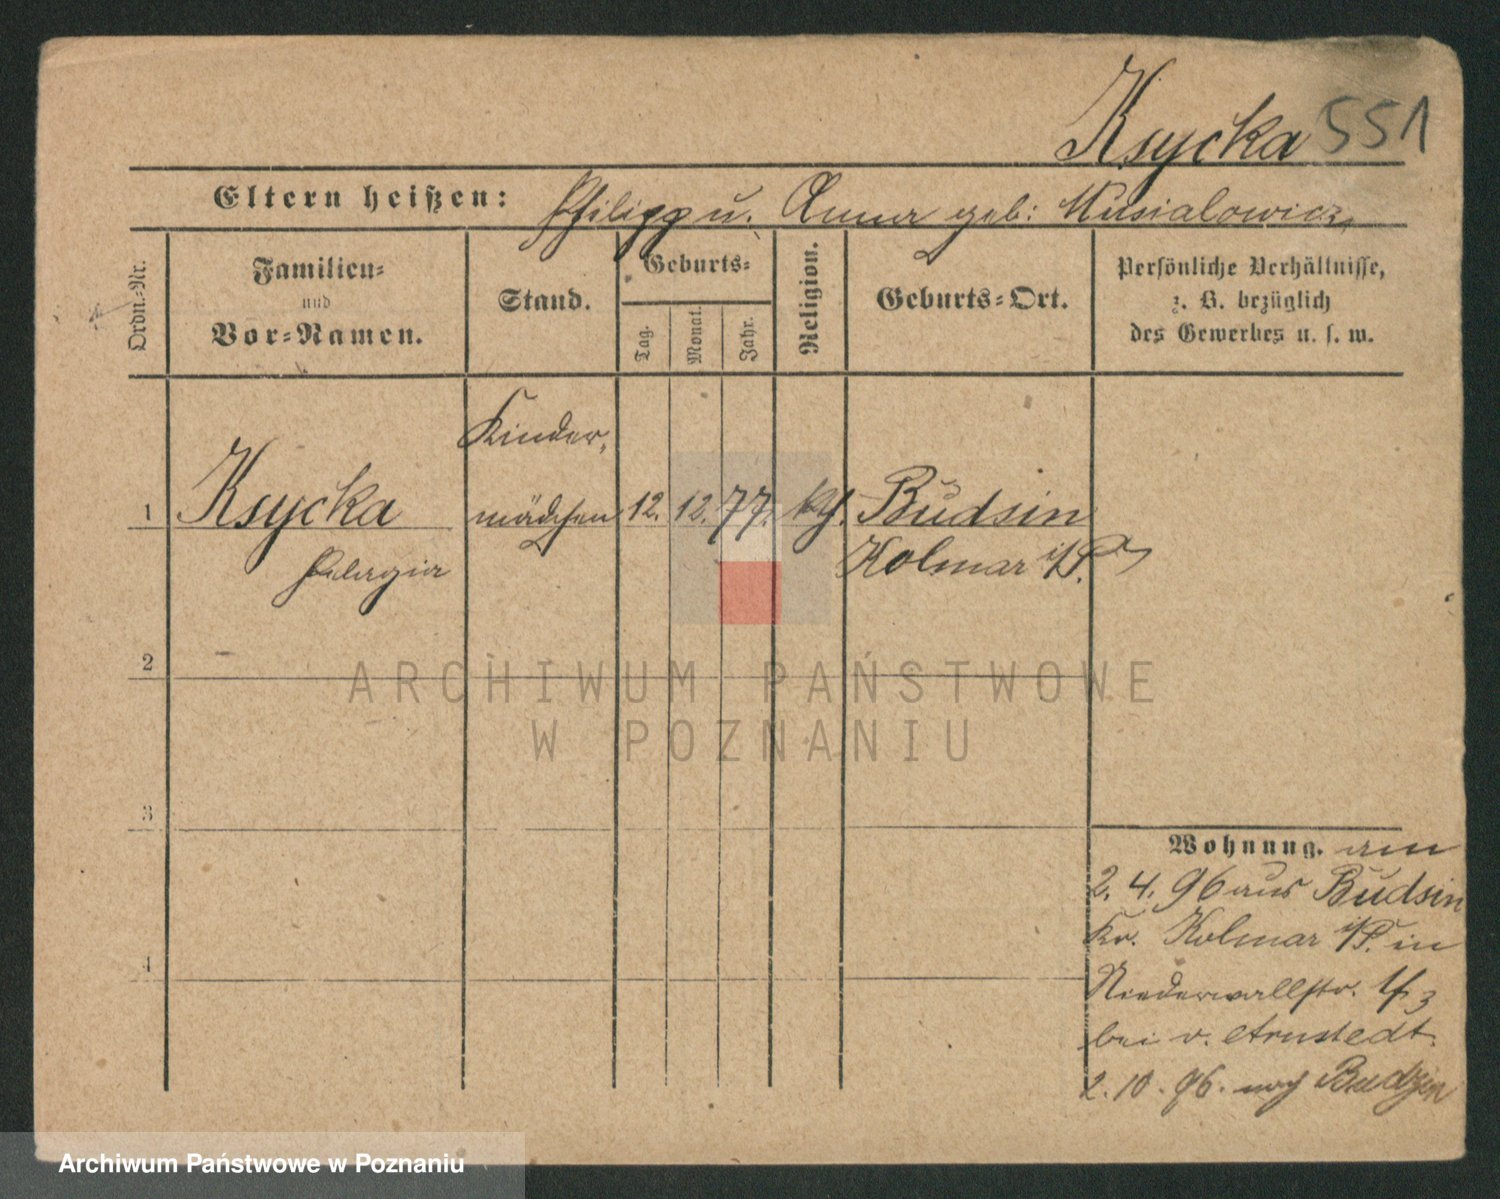 Ksycka 551
Eltern heißen: Philipp u. Anna geb: Musialowicz
Ordn.-Nr.
Familien-
und
Vor-Namen.
Stand.
Geburts-
Tag.
Monat.
Jahr.
Religion.
Geburts-Ort.
Persönliche Verhältnisse,
z. B. bezüglich
des Gewerbes u. s. w.
Kinder-
1 Ksycka mädchen 12. 12. 77. kth. Budsin
Pelagia Kolmar i/P.
2
ARCHIWUM PAŃSTWOWE
W POZNANIU
3
Wohnung. am
2. 4. 96 aus Budsin
Kr. Kolmar i/P. in
4
Niederwallstr.
bei v. Arnstedt.
2. 10. 96. nach Budzin
Archiwum Państwowe w Poznaniu